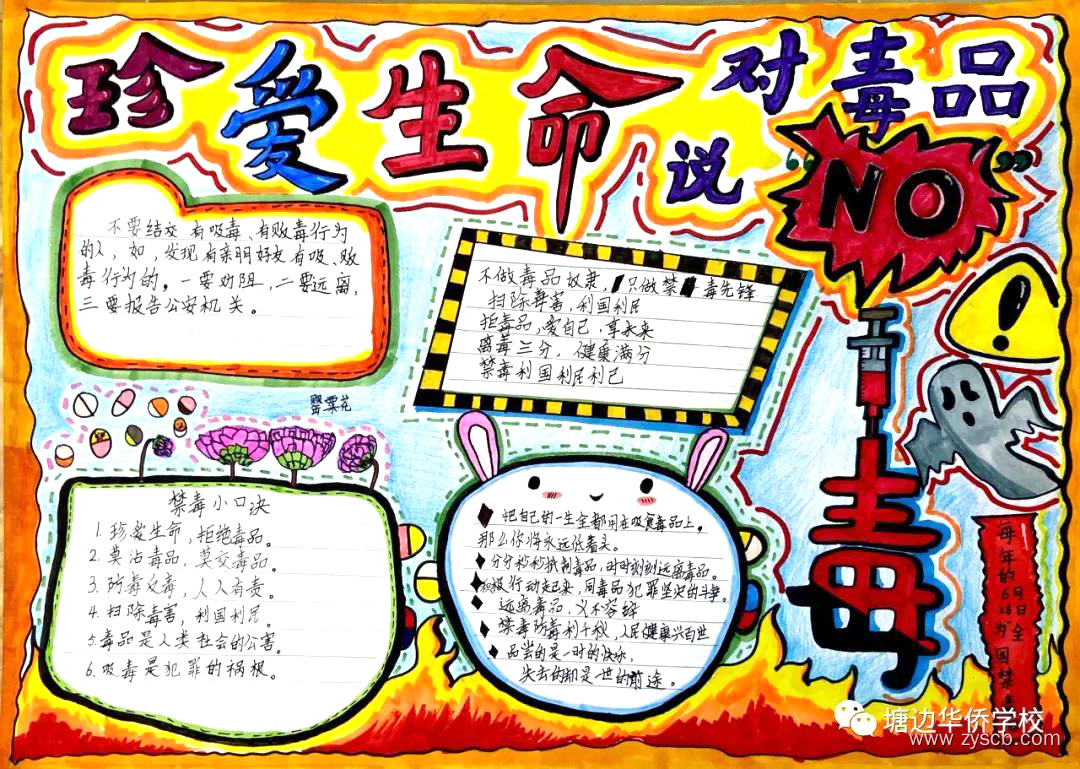 珍爱生命
对毒品
说
“NO”
不要结交有吸毒、有贩毒行为
的人，如，发现有亲朋好友有吸、贩
毒行为的，一要劝阻，二要远离，
三要报告公安机关。
不做毒品奴隶，只做禁毒先锋
扫除毒害，利国利民
拒毒品，爱自己，享未来
离毒三分，健康满分
禁毒利国利民利己
罂粟花
禁毒小口决
1. 珍爱生命，拒绝毒品。
2. 莫沾毒品，莫交毒品。
3. 防毒反毒，人人有责。
4. 扫除毒害，利国利民。
5. 毒品是人类社会的公害。
6. 吸毒是犯罪的祸根。
把自己的一生全都用在吸食毒品上。
那么你将永远低着头。
分分秒秒抵制毒品，时时刻刻远离毒品。
积极行动起来，同毒品犯罪坚决的斗争。
远离毒品，义不容辞
禁毒防毒利千秋，人民健康兴百世
品尝的是一时的快乐，
失去的却是一世的前途。
毒
每年的6月26日为全国禁
塘边华侨学校
www.zyscb.com